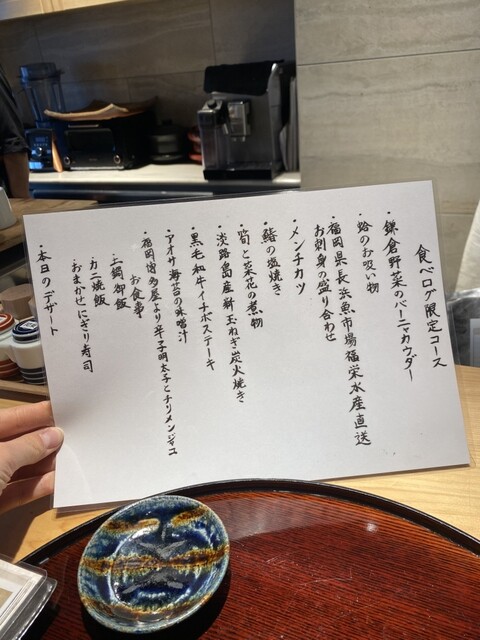 食べログ限定コース
・鎌倉野菜のバーニャカウダー
・蛤のお吸い物
・福岡県長浜魚市場福栄水産直送
お刺身の盛り合わせ
・メンチカツ
・鮨の塩焼き
・筍と菜花の煮物
・淡路島産新玉ねぎ炭火焼き
・黒毛和牛イチボステーキ
・アオサ海苔の味噌汁
・福岡博多屋より辛子明太子とチリメンジャコ
お食事
土鍋御飯
カニ焼飯
おまかせにぎり寿司
・本日のデザート